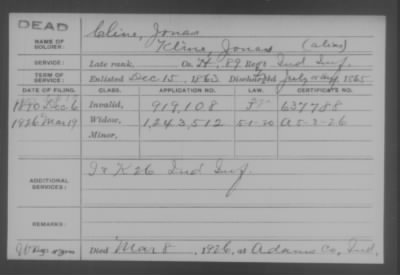 DEAD
NAME OF SOLDIER:
Cline, Jonas
Kline, Jonas (alias)
SERVICE: Late rank, Co. H, 89 Reg't Ind Inf.
TERM OF SERVICE: Enlisted Dec 15, 1863 Discharged July 1865
DATE OF FILING. CLASS. APPLICATION NO. LAW. CERTIFICATE NO.
1890 Dec 6 Invalid, 919,108 637788
1926 Mar 19 Widow, 1,243,512 5-1-20 A 5-3-26
Minor,
ADDITIONAL SERVICES:
I & K 26 Ind Inf.
REMARKS:
Died Mar 8, 1926, at Adams Co, Ind.